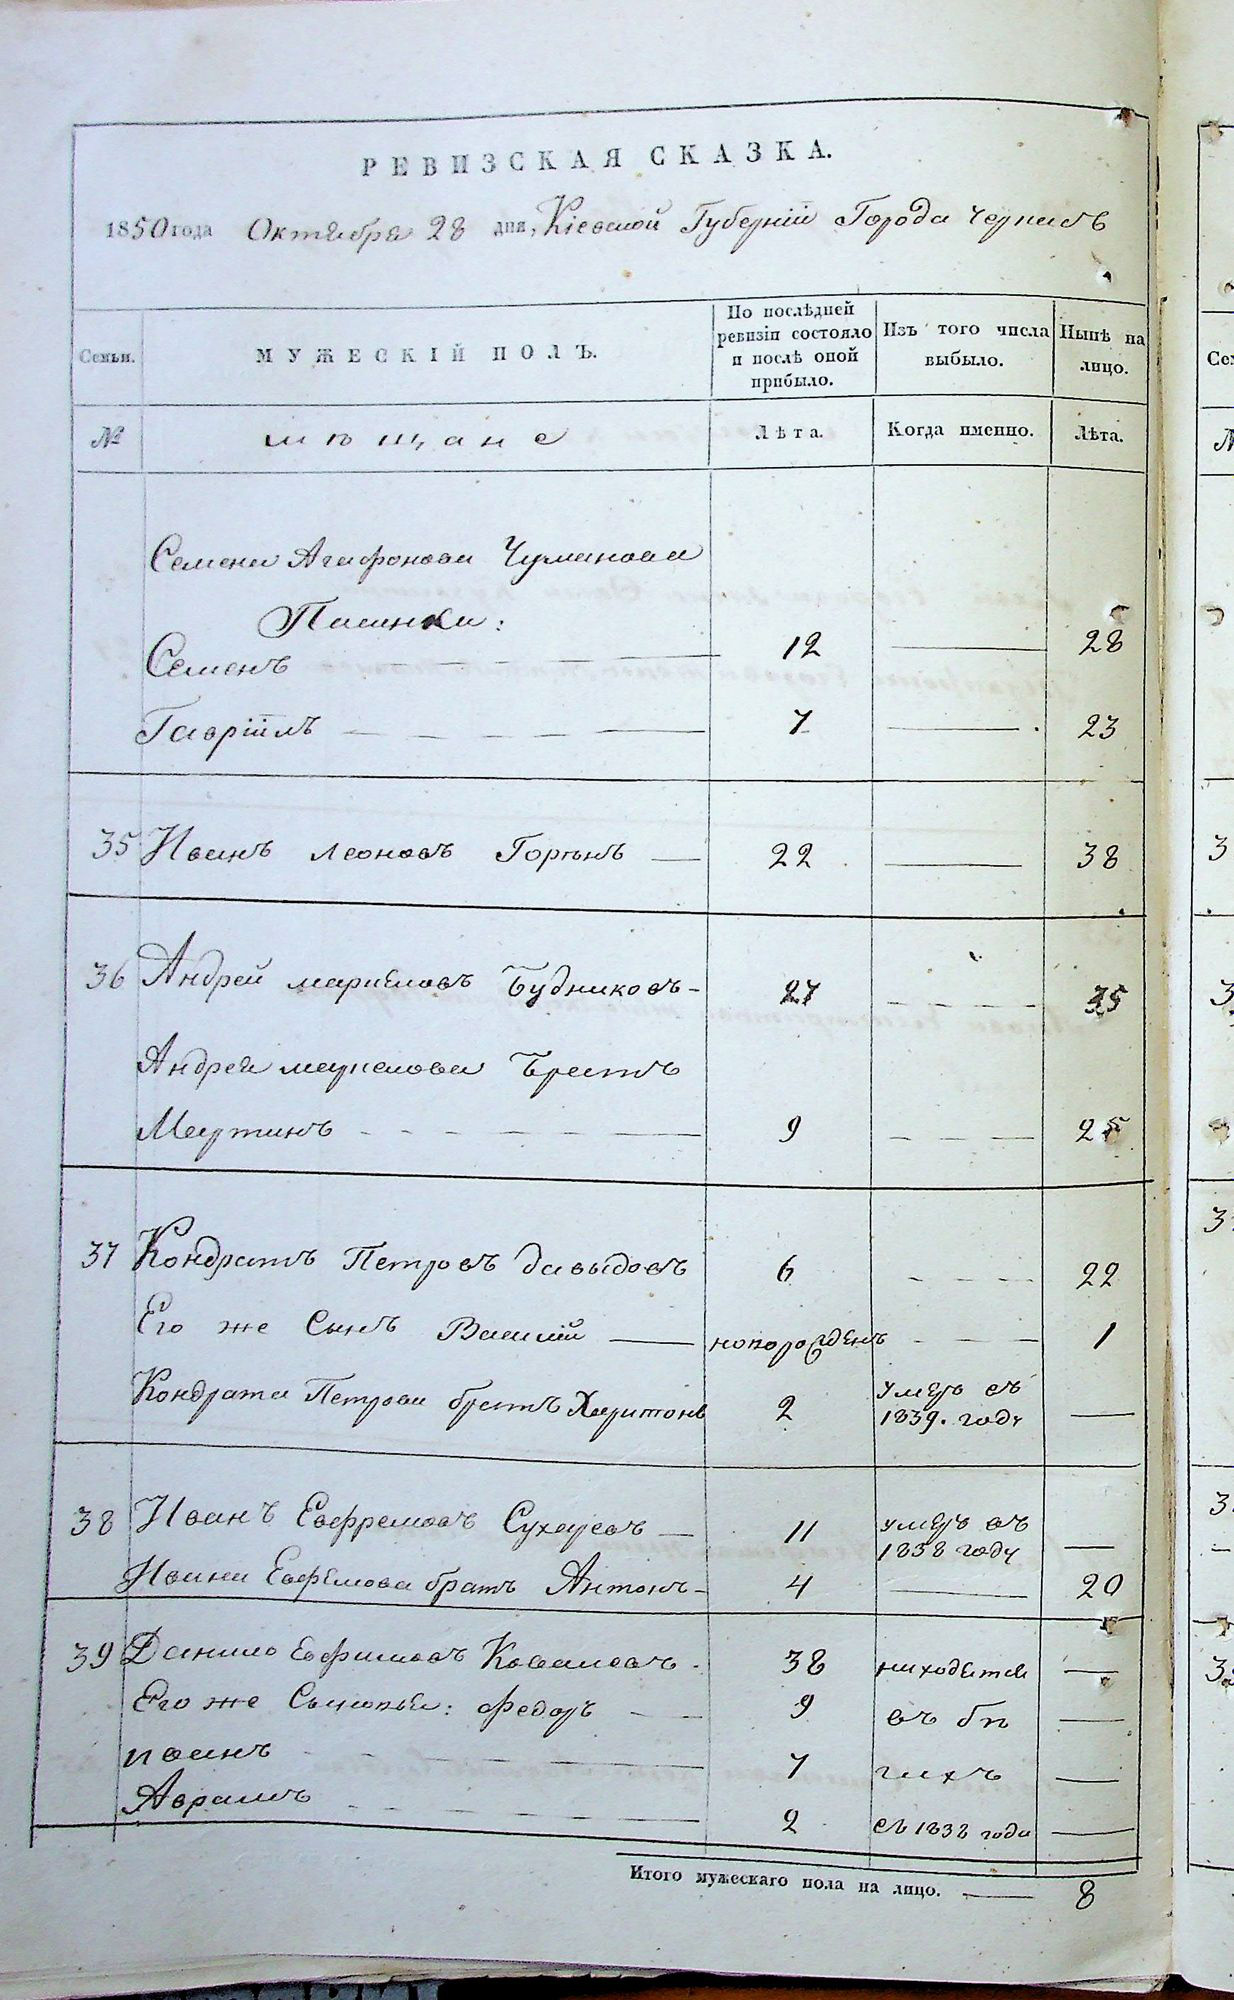 РЕВИЗСКАЯ СКАЗКА.
1850 года Октября 28 дня, Кіевской Губерніи Города
Семьи.
МУЖЕСКІЙ ПОЛЪ.
По послѣдней
ревизіи состояло
и послѣ оной
прибыло.
Изъ того числа
выбыло.
Нынѣ на
лицо.
№ мѣщане Лѣта. Когда именно. Лѣта.
Семена Агафонова Чуманова
Пасынки:
Семенъ 12 28
Гавріилъ 7 23
35 Иванъ Леоновъ 22 38
36 Андрей Маркеловъ Будниковъ 27 35
Андрея Маркелова Братъ
Мартинъ 9 25
37 Кондратъ Петровъ Давыдовъ 6 22
Его же Сынъ Василій новорожденъ 1
Кондрата Петрова братъ Харитонъ 2 умеръ въ
1839. году
38 Иванъ Евфремовъ Сухаревъ 11 умеръ въ
1838 году
Ивана Евфремова братъ Антонъ 4 20
39 Данило Евфимовъ Ковалевъ 38 находятся
Его же Сыновья: Федоръ 9 въ бѣ
Иванъ 7 гахъ
Аврамъ 2 съ 1838 года
Итого мужескаго пола на лицо. 8